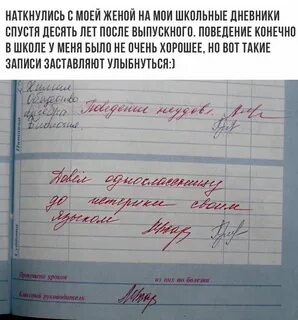 НАТКНУЛИСЬ С МОЕЙ ЖЕНОЙ НА МОИ ШКОЛЬНЫЕ ДНЕВНИКИ
СПУСТЯ ДЕСЯТЬ ЛЕТ ПОСЛЕ ВЫПУСКНОГО. ПОВЕДЕНИЕ КОНЕЧНО
В ШКОЛЕ У МЕНЯ БЫЛО НЕ ОЧЕНЬ ХОРОШЕЕ, НО ВОТ ТАКИЕ
ЗАПИСИ ЗАСТАВЛЯЮТ УЛЫБНУТЬСЯ:)
Поведение неудов.
Довёл одноклассницу
до истерики своим
языком
Пропущено уроков из них по болезни
Классный руководитель